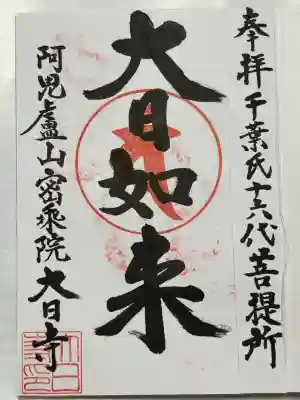 奉拝千葉氏十六代菩提所
大日如来
阿毘盧山密乘院
大日寺